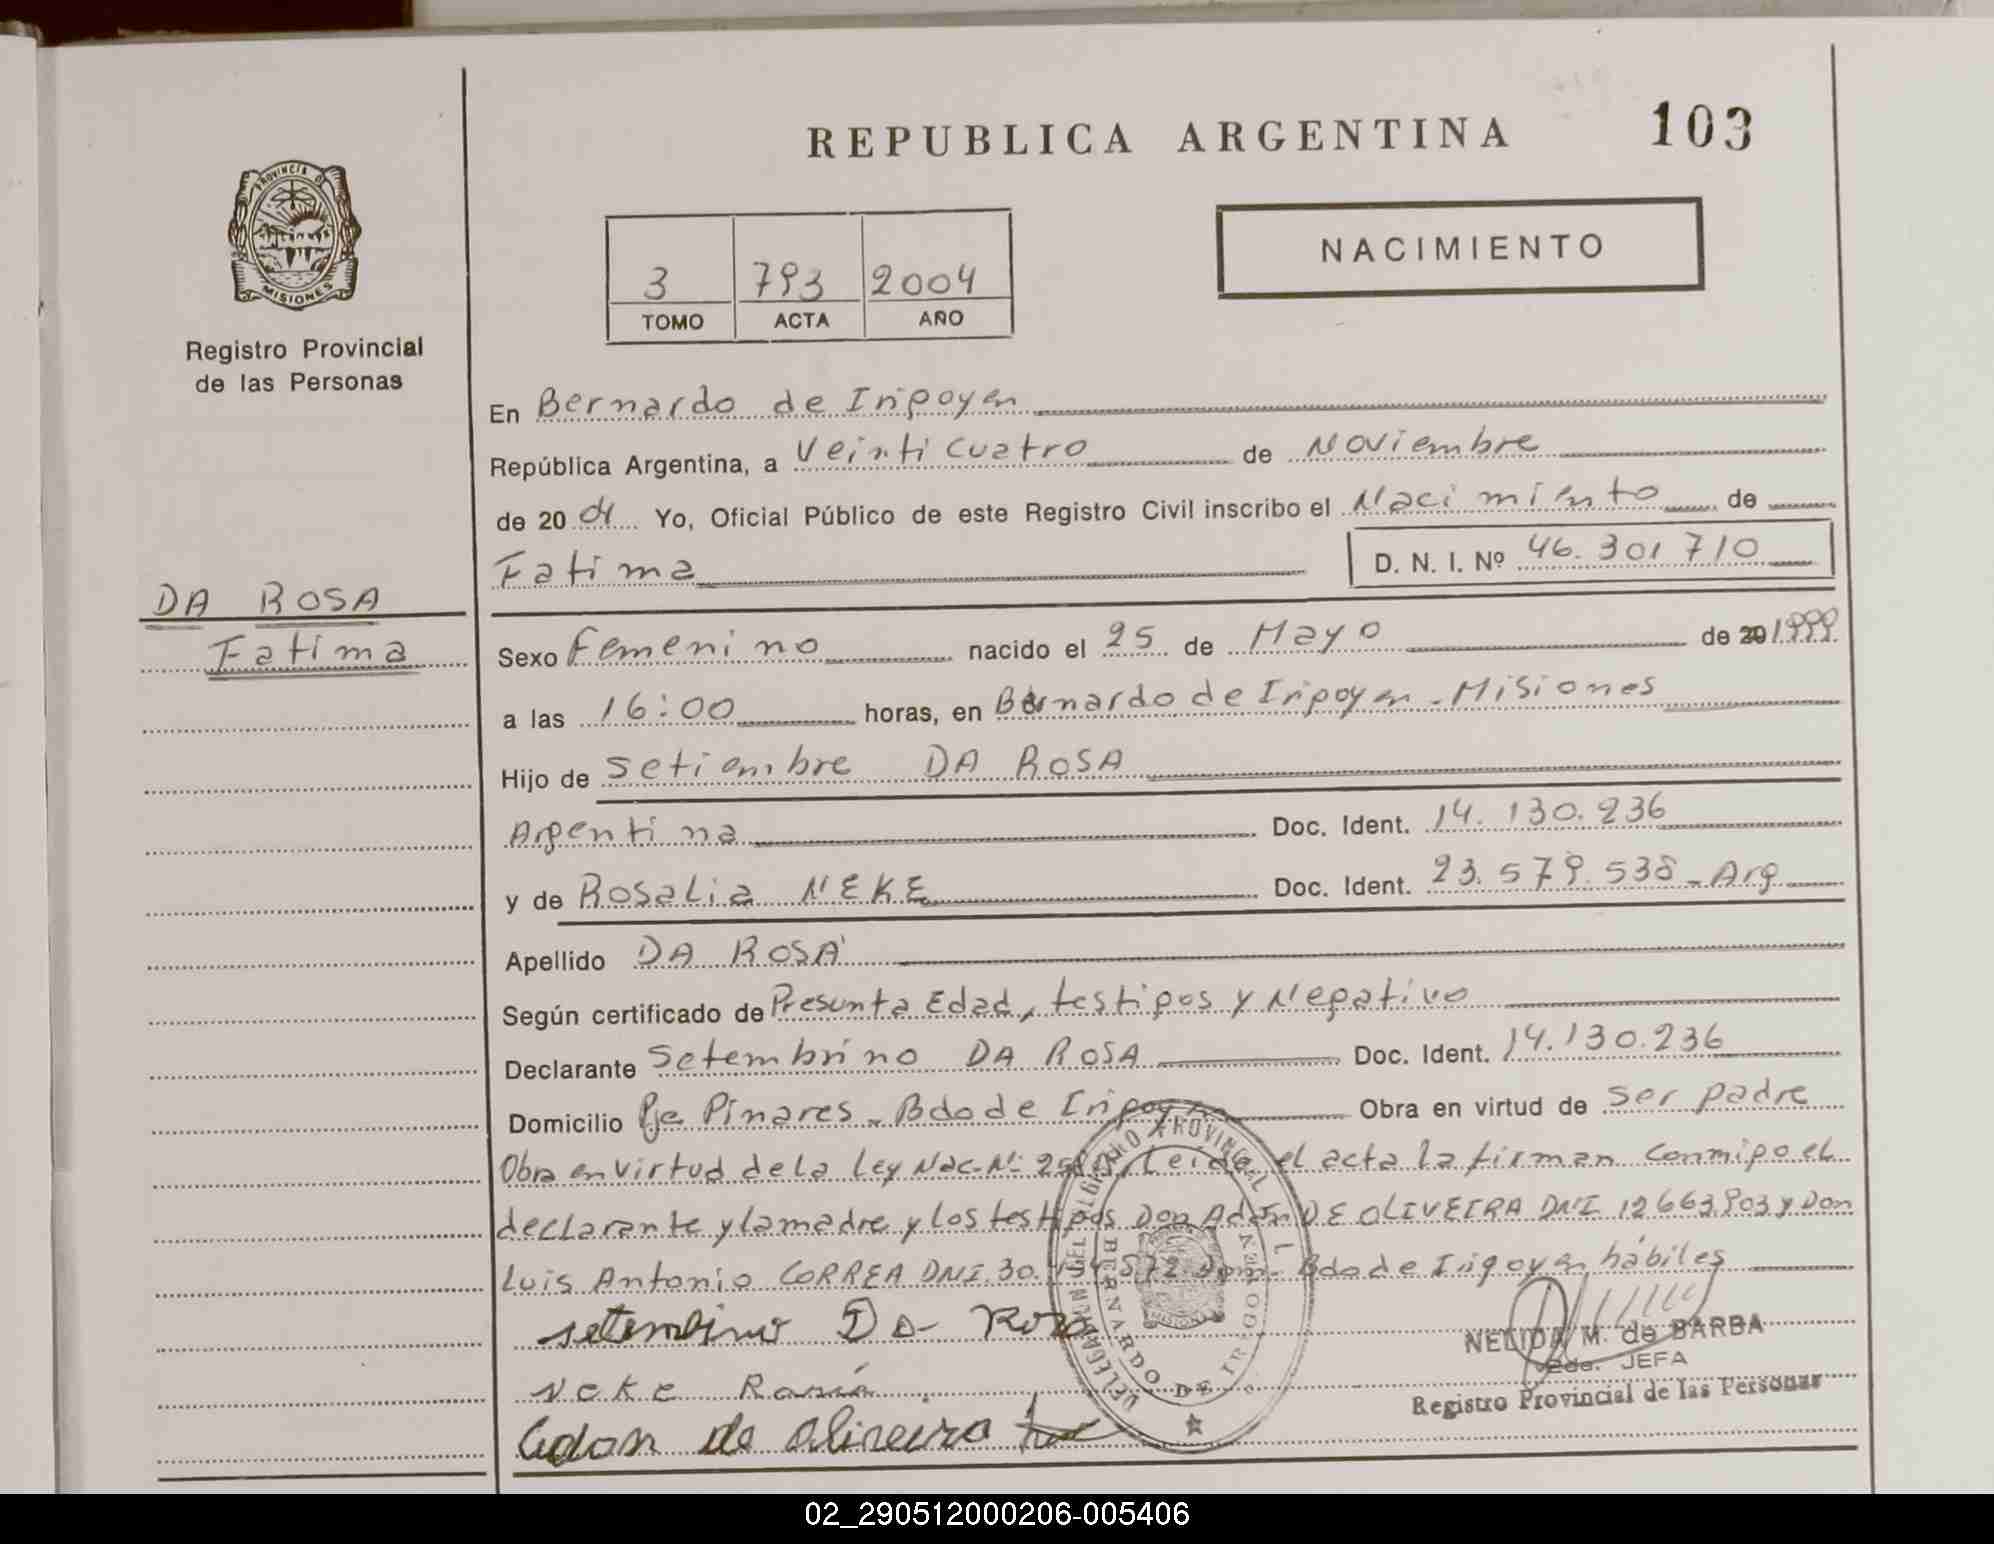 REPUBLICA ARGENTINA 103
PROVINCIA DE MISIONES
Registro Provincial
de las Personas
3 793 2004
TOMO ACTA AÑO
NACIMIENTO
En Bernardo de Irigoyen
República Argentina, a Veinticuatro de Noviembre
de 2004 Yo, Oficial Público de este Registro Civil inscribo el Nacimiento de
Fatima D. N. I. Nº 46.301710
DA ROSA
Fatima
Sexo Femenino nacido el 25 de Mayo de 20 1999
a las 16:00 horas, en Bernardo de Irigoyen - Misiones
Hijo de Setiembre DA ROSA
Argentina Doc. Ident. 14.130.236
y de Rosalia NEKE Doc. Ident. 23.579.538 - Arg
Apellido DA ROSA
Según certificado de Presunta Edad, testigos y Negativo
Declarante Setembrino DA ROSA Doc. Ident. 14.130.236
Domicilio Pje Pinares - Bdo de Irigoyen Obra en virtud de ser padre
Obra en virtud de la Ley Nac. Nº Leida el acta la firman conmigo el
declarante y la madre y los testigos Don Adan DE OLIVEIRA DNI 12663903 y Don
Luis Antonio CORREA DNI. 30. 572 Dom. Bdo de Irigoyen hábiles
setembrino Da Roza
Neke
Adan de oliveira
NELIDA M. de BARBA
JEFA
Registro Provincial de las Personas
BERNARDO DE IRIGOYEN
02_290512000206-005406